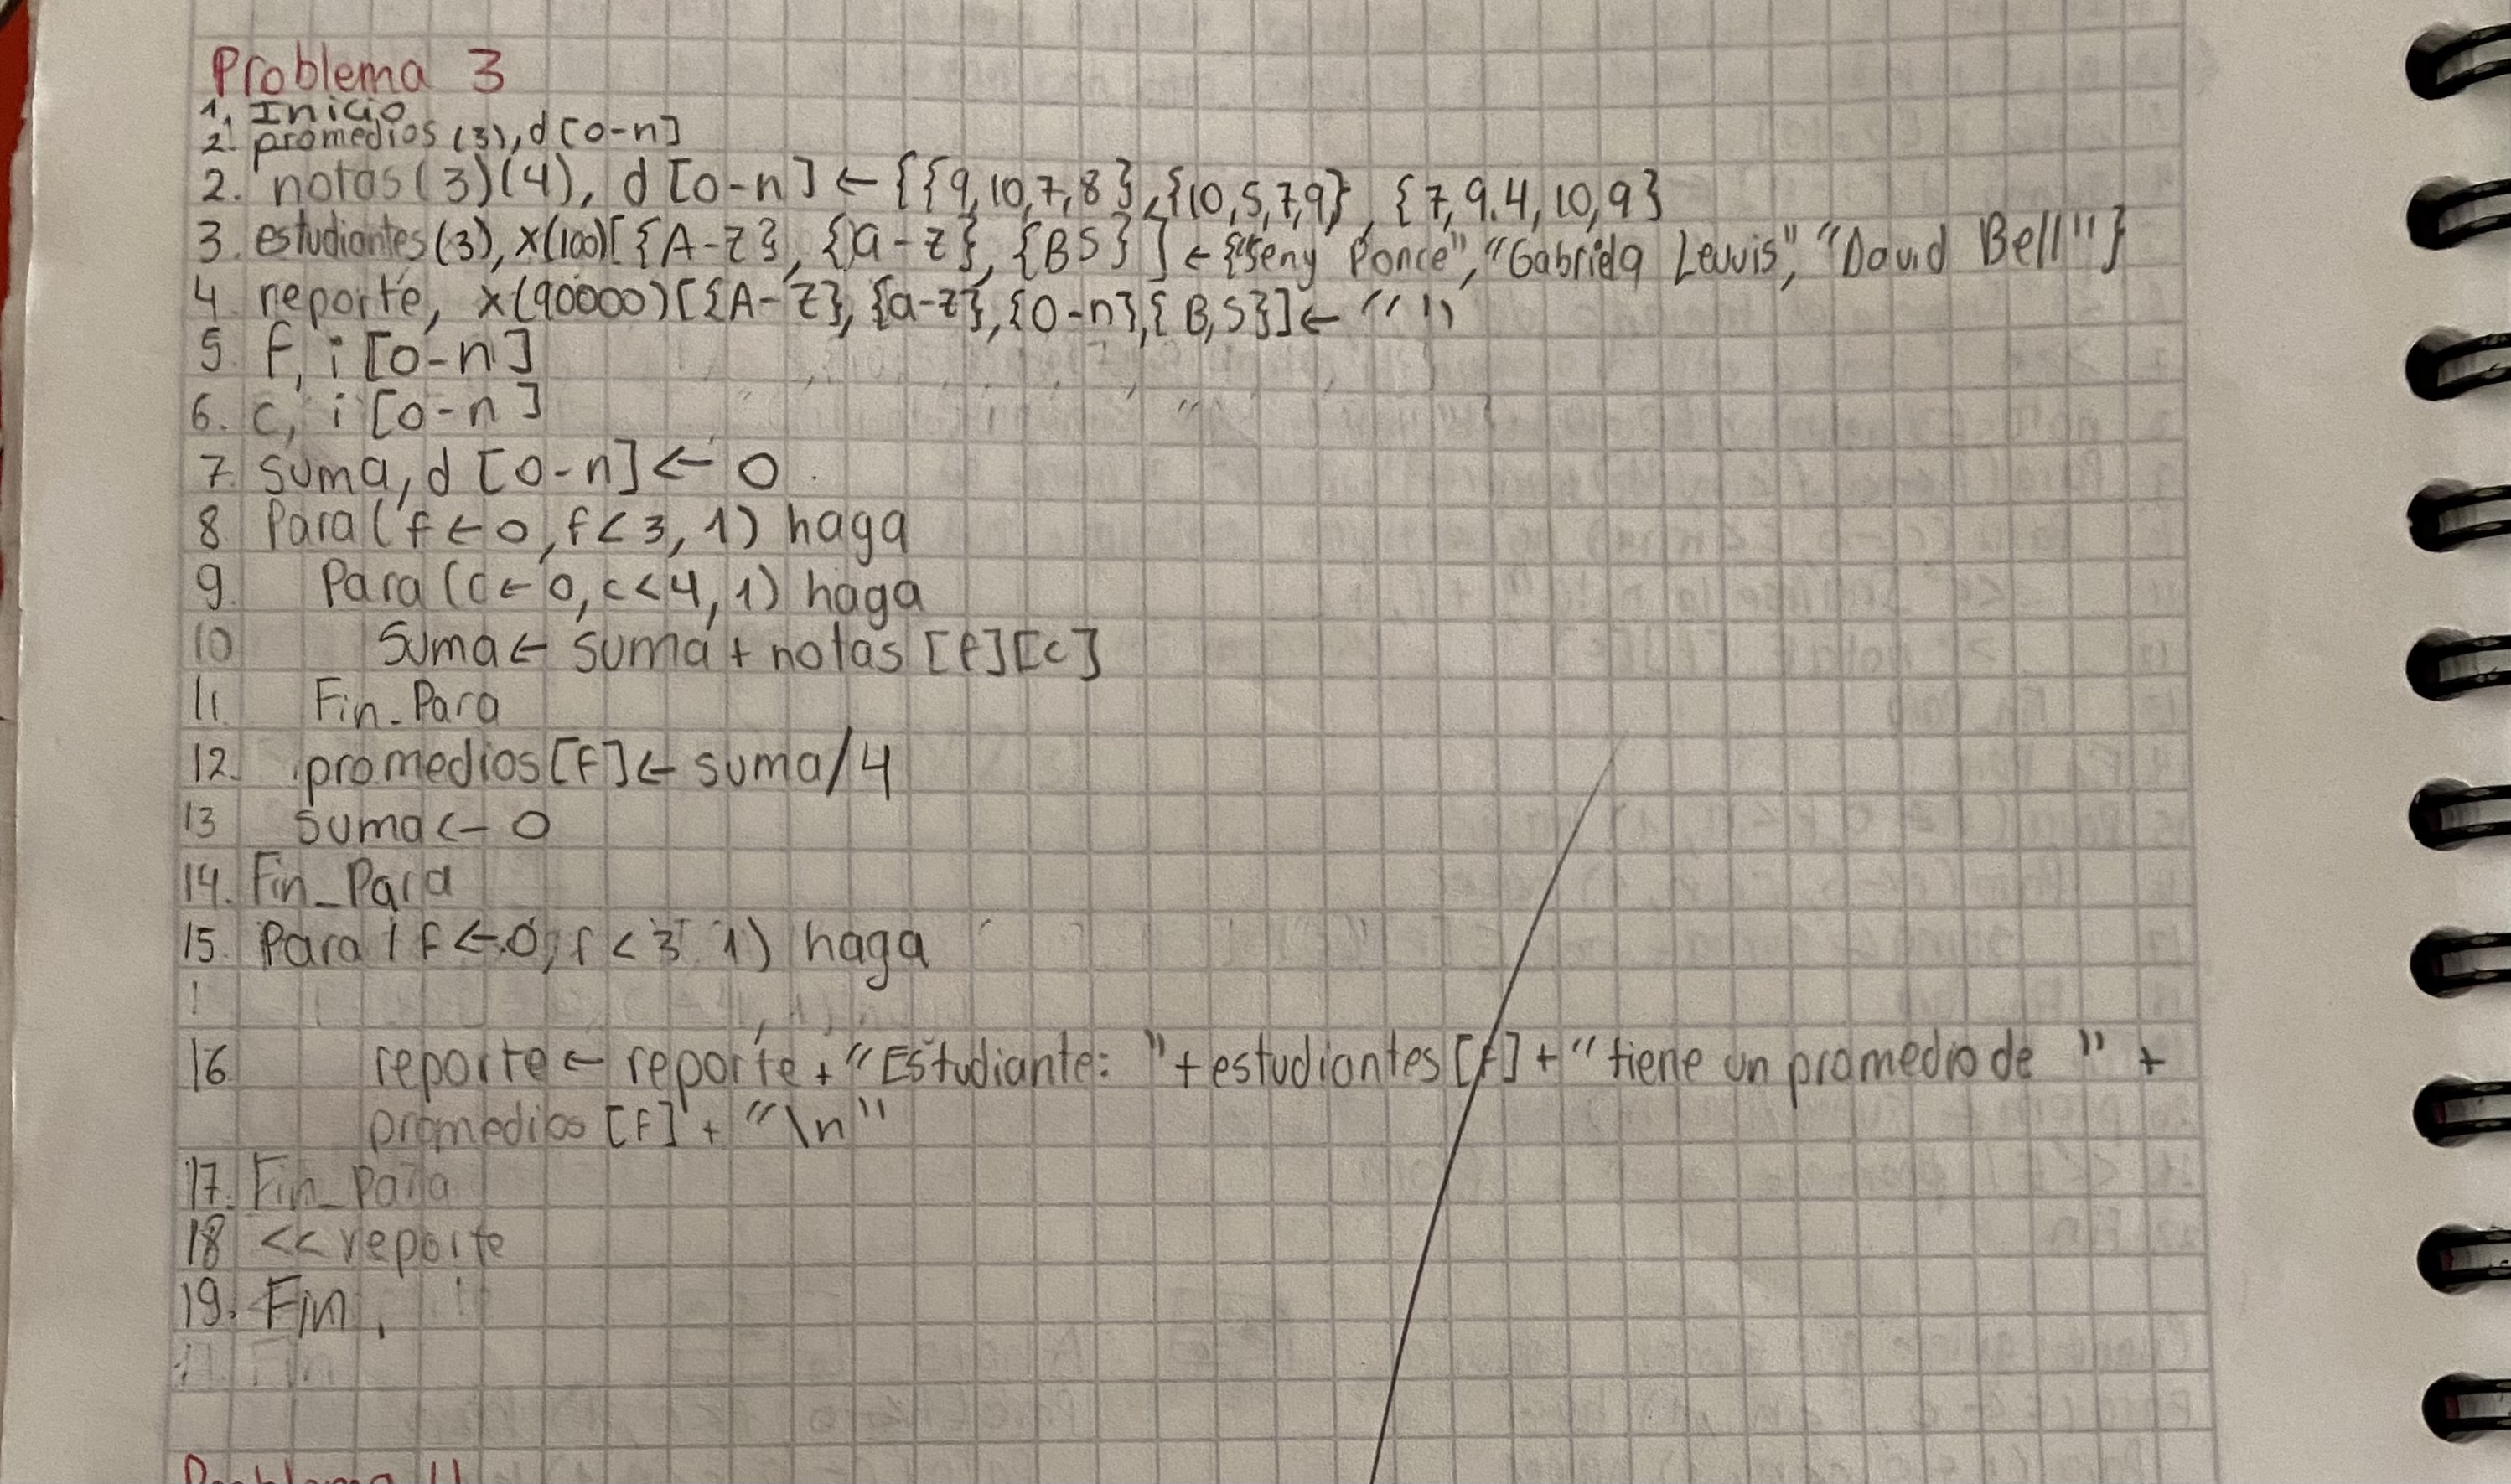 Problema 3
1. Inicio
2. promedios (3), d[0-n]
2. notas(3)(4), d [0-n] ← {{9,10,7,8},{10,5,7,9}, {7,9.4,10,9}
3. estudiantes(3), x(100)[{A-Z}, {a-z}, {BS}] ← {"Seny Ponce", "Gabriela Lewis", "David Bell"}
4 reporte, x(90000)[{A-Z}, {a-z}, {0-n},{B,S}]← " "
5 f, i [0-n]
6. c, i [0-n]
7. suma, d [0-n] ← 0
8 Para (f ← 0, f<3, 1) haga
9. Para (c ← 0, c<4, 1) haga
10 suma ← suma + notas [f][c]
11 Fin_Para
12. promedios[f] ← suma/4
13 suma ← 0
14. Fin_Para
15. Para ( f ← 0, f < 3 1) haga
16 reporte ← reporte + "Estudiante: " + estudiantes [f] + "tiene un promedio de " +
promedios [f] + "\n"
17. Fin_Para
18 << reporte
19. Fin.
Problema 4